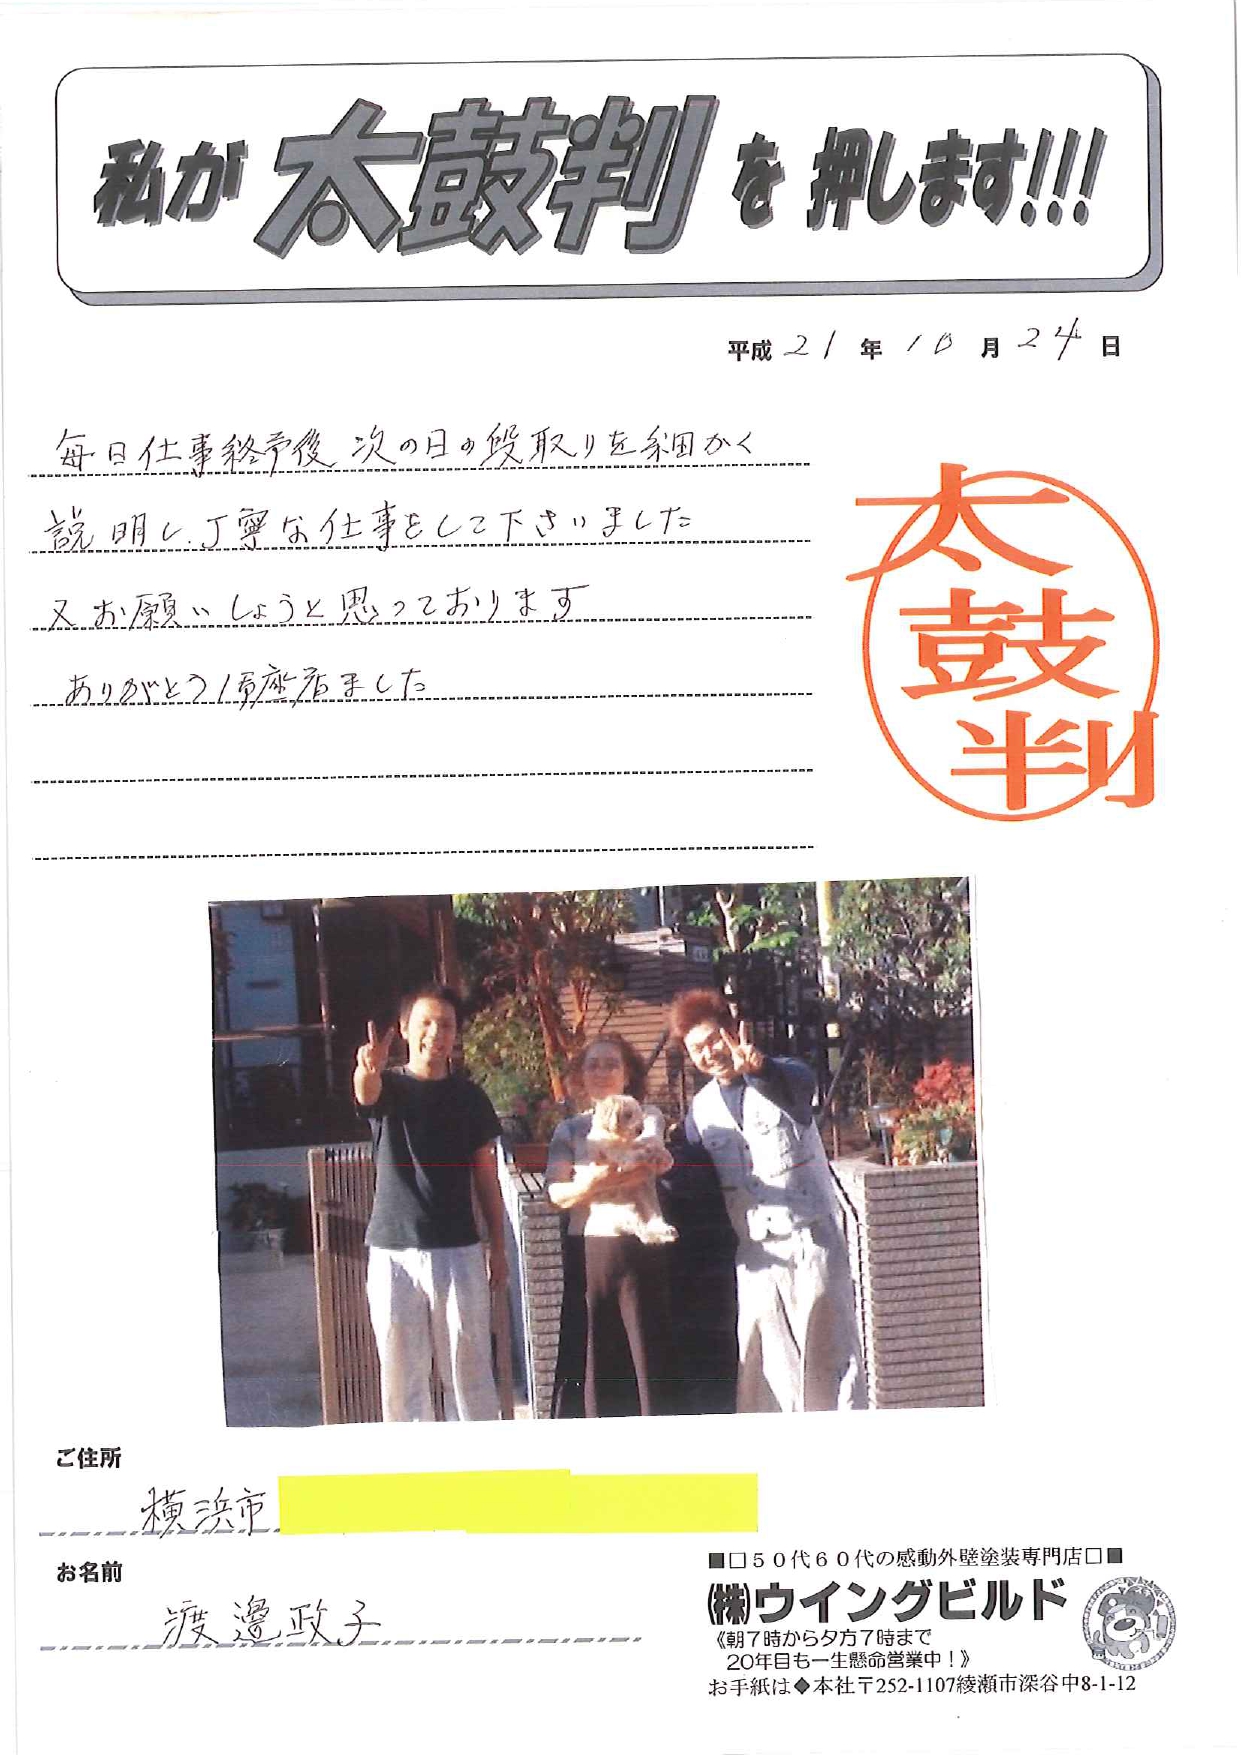 私が太鼓判を押します!!!
平成21年10月24日
毎日仕事終予後次の日の段取りを細かく
説明し、丁寧な仕事をして下さいました
又お願いしようと思っております
ありがとう御座居ました
太鼓判
ご住所
横浜市
お名前
渡邉政子
■□50代60代の感動外壁塗装専門店□■
㈱ウイングビルド
《朝7時から夕方7時まで
20年目も一生懸命営業中！》
お手紙は◆本社〒252-1107綾瀬市深谷中8-1-12